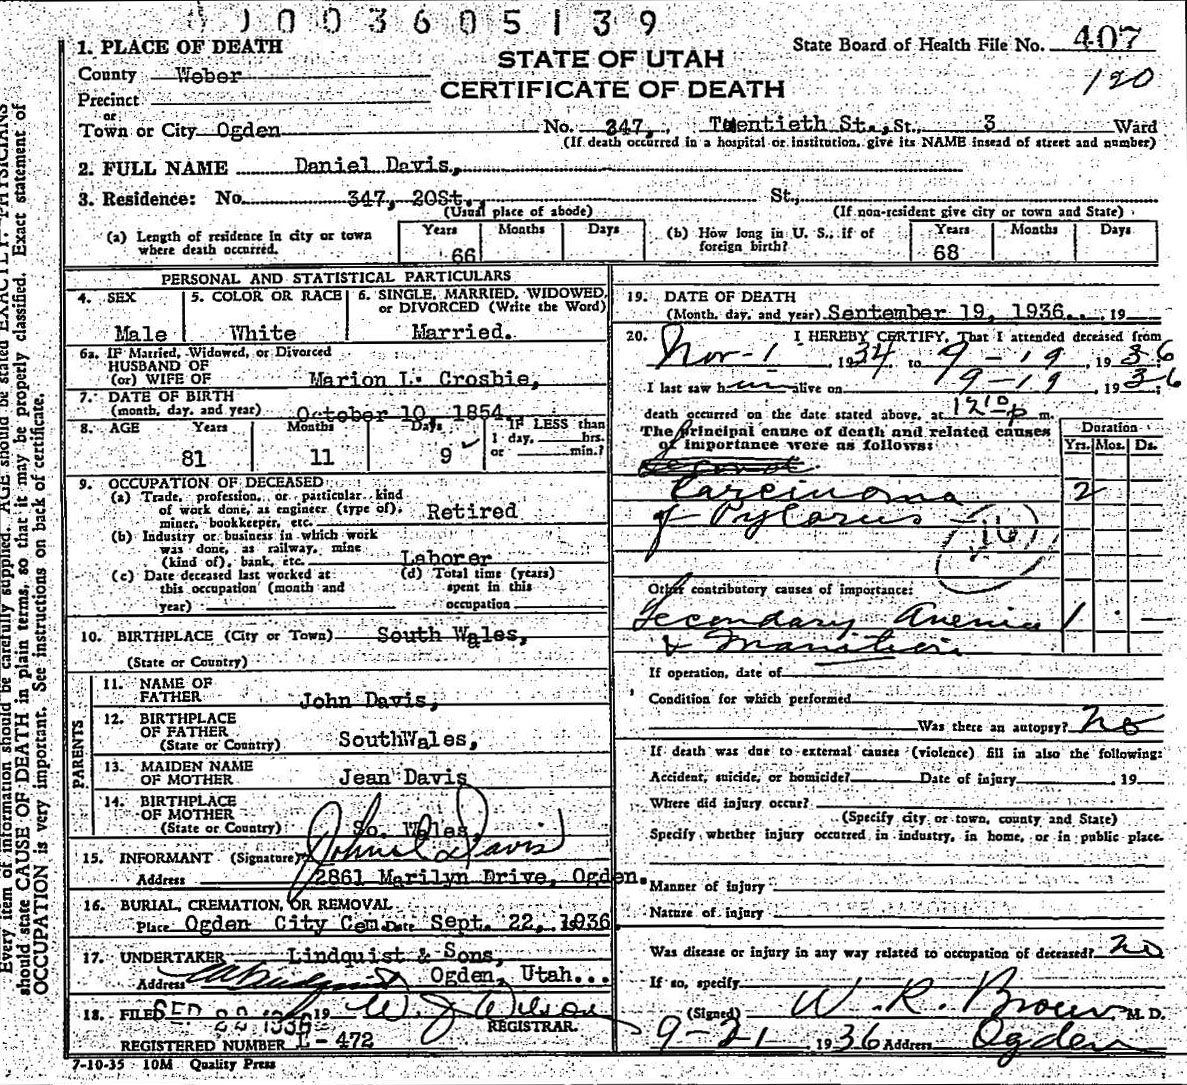 003605139
1. PLACE OF DEATH
State Board of Health File No. 407
County Weber
STATE OF UTAH
120
Precinct
CERTIFICATE OF DEATH
or
Town or City Ogden No. 347, Twentieth St., St., 3 Ward
(If death occurred in a hospital or institution, give its NAME insead of street and number)
2. FULL NAME Daniel Davis,
3. Residence: No. 347, 20St., St.,
(Usual place of abode) (If non-resident give city or town and State)
(a) Length of residence in city or town where death occurred. Years 66 Months Days
(b) How long in U. S., if of foreign birth? Years 68 Months Days
PERSONAL AND STATISTICAL PARTICULARS
4. SEX Male
5. COLOR OR RACE White
6. SINGLE, MARRIED, WIDOWED, or DIVORCED (Write the Word) Married.
6a. IF Married, Widowed, or Divorced
HUSBAND OF
(or) WIFE OF Marion L. Crosbie,
7. DATE OF BIRTH
(month, day, and year) October 10, 1854
8. AGE Years 81 Months 11 Days 9 IF LESS than 1 day, hrs. or min.?
9. OCCUPATION OF DECEASED
(a) Trade, profession, or particular kind
of work done, as engineer (type of),
miner, bookkeeper, etc. Retired
(b) Industry or business in which work
was done, as railway, mine
(kind of), bank, etc. Laborer
(c) Date deceased last worked at
this occupation (month and
year)
(d) Total time (years)
spent in this
occupation
10. BIRTHPLACE (City or Town) South Wales,
(State or Country)
PARENTS
11. NAME OF
FATHER John Davis,
12. BIRTHPLACE
OF FATHER
(State or Country) SouthWales,
13. MAIDEN NAME
OF MOTHER Jean Davis
14. BIRTHPLACE
OF MOTHER
(State or Country) So. Wales,
15. INFORMANT (Signature) John L Davis
Address 2861 Marilyn Drive, Ogden.
16. BURIAL, CREMATION, OR REMOVAL
Place Ogden City Cem. Date Sept. 22, 1936
17. UNDERTAKER Lindquist & Sons,
Address Ogden, Utah...
18. FILED SEP 22 1936 19 W. J. Wilson
REGISTRAR.
REGISTERED NUMBER L-472
7-10-35 10M Quality Press
19. DATE OF DEATH
(Month, day, and year) September 19, 1936. , 19
20. I HEREBY CERTIFY, That I attended deceased from
Nov-1, 1934 to 9-19, 1936
I last saw him alive on 9-19, 1936
death occurred on the date stated above, at 12 10 p m.
The principal cause of death and related causes
of importance were as follows:
Duration
Yrs. Mos. Ds.
Carcinoma 2
of Pylorus
Other contributory causes of importance:
Secondary Anemia 1 - -
&
If operation, date of
Condition for which performed
Was there an autopsy? no
If death was due to external causes (violence) fill in also the following:
Accident, suicide, or homicide? Date of injury , 19
Where did injury occur?
(Specify city or town, county and State)
Specify whether injury occurred in industry, in home, or in public place.
Manner of injury
Nature of injury
Was disease or injury in any way related to occupation of deceased? no
If so, specify
(Signed) W. R. Brown M. D.
9-21 1936 Address Ogden
Every item of information should be carefully supplied. AGE should be stated EXACTLY. PHYSICIANS
should state CAUSE OF DEATH in plain terms, so that it may be properly classified. Exact statement of
OCCUPATION is very important. See instructions on back of certificate.